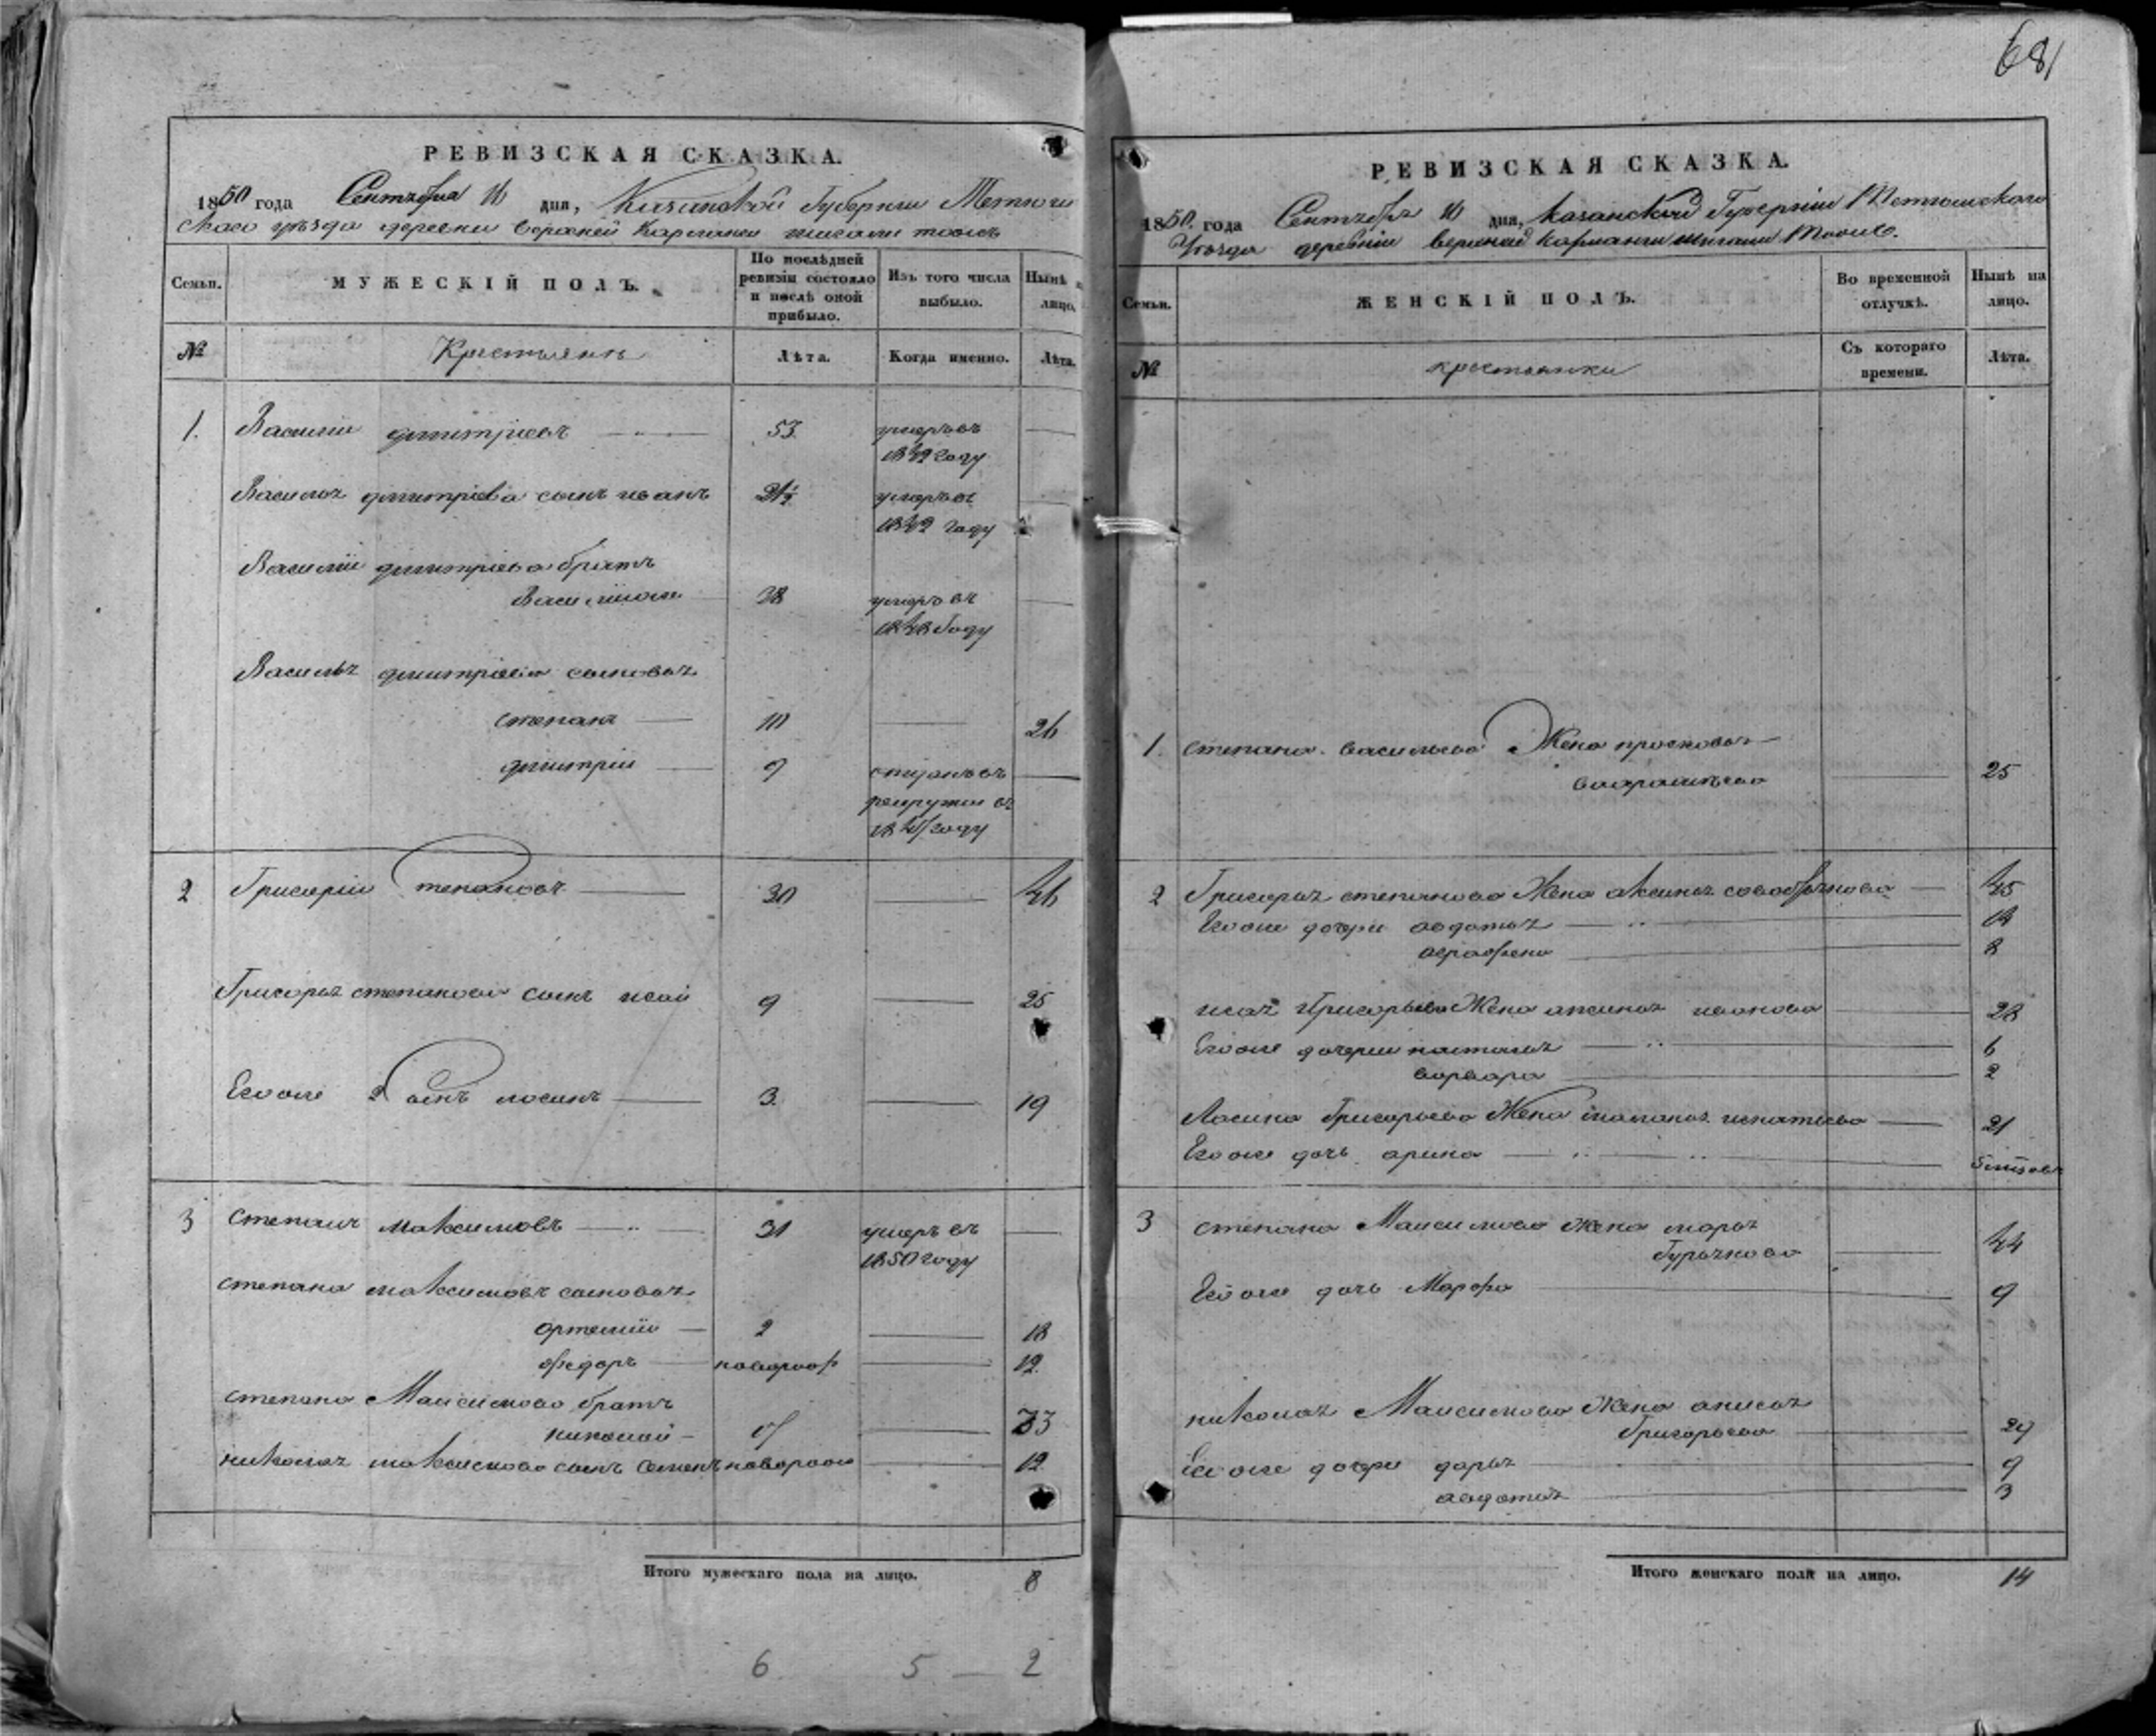 681
РЕВИЗСКАЯ СКАЗКА.
1850 года Сентября 16 дня, Казанской Губернии Тетюш
скаго уѣзда деревни верхней Карланги
Семьи.
МУЖЕСКІЙ ПОЛЪ.
По послѣдней ревизіи состояло и послѣ оной прибыло.
Изъ того числа выбыло.
Нынѣ лицо.
№
Крестьянъ
Лѣта.
Когда именно.
Лѣта.
1. Василіи дмитріевъ 53 умеръ въ
1842 году
Васильи дмитріева сынъ иванъ 21½ умеръ въ
1842 году
Василіи дмитріева братъ
Василиіже 38 умеръ въ
1848 Году
Васильи дмитріева сыновья
степанъ 10 26
дмитріи 9 отданъ въ
рекруты въ
году
2 Григоріи степановъ 30 46
Григорья степанова сынъ исай 9 25
Его же 2 сынъ 3. 19
3 степанъ максимовъ 31 умеръ въ
1850 году
степана максимовъ сыновья
артеміи 2 18
федоръ новорож 12.
степана Максимова братъ
николай 17 33
николая максимова сынъ семенъ новорож 12
Итого мужескаго пола на лицо. 8
6 5 — 2
РЕВИЗСКАЯ СКАЗКА.
1850. года Сентября 16 дня, казанской Губерніи Тетюшскаго
Уѣзда деревни верхней
Семьи.
ЖЕНСКІЙ ПОЛЪ.
Во временной отлучкѣ.
Нынѣ на лицо.
№
крестьянки
Съ котораго времени.
Лѣта.
1. степана васильева Жена просковья
25
2 Григорья степанова Жена аксинья 45
Его же дочери авдотья 14
аграфена 8
исая Григорьева Жена аксинья иванова 28
Его же дочери наталья 6
варвара 2
Григорьева Жена игнатьева 21
Его же дочь арина
3 степана Максимова жена марья
44
Его же дочь Марфа 9
николая Максимова жена анисья
Григорьева 29
Его же дочери дарья 9
авдотья 3
Итого женскаго пола на лицо. 14